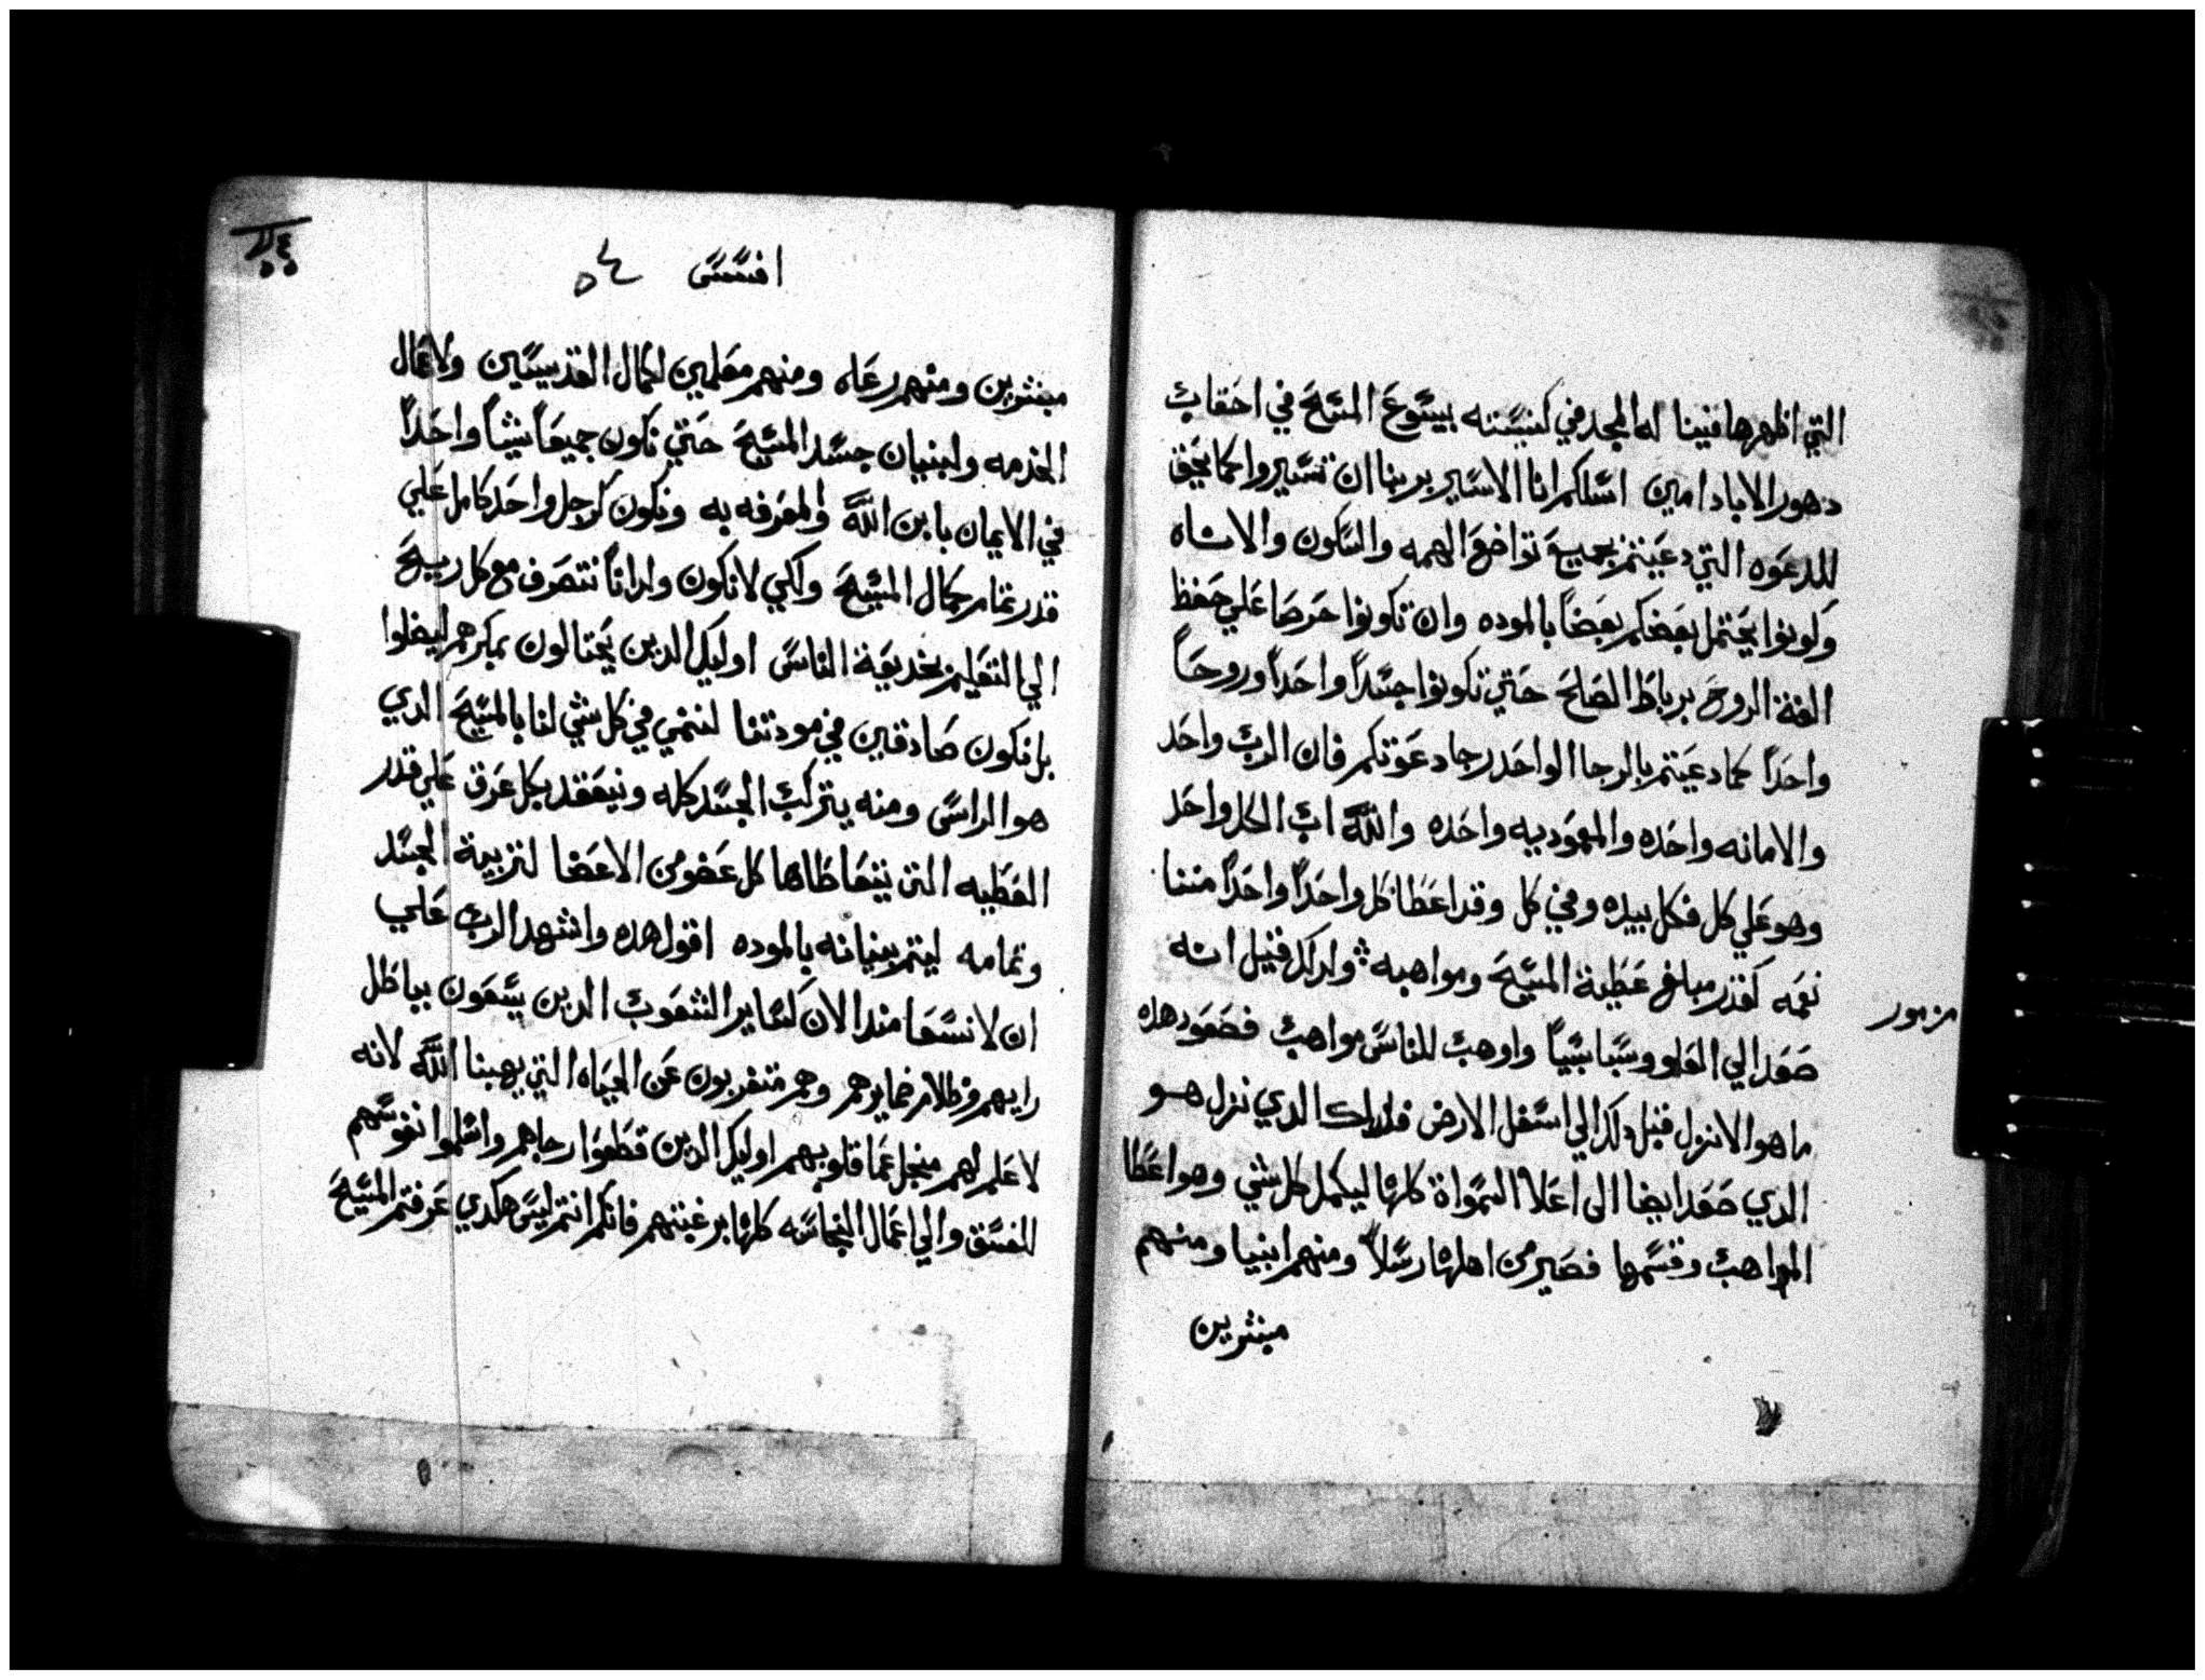 التي اظهرها فينا له المجد في كنيسته بيسوع المسيح في احقاب
دهور الاباد امين اسلكم انا الاسير بربنا ان تسيروا كما يحق
للدعوه التي دعيتم بجميع تواضع الهمه والسكون والاناه
وكونوا يحتمل بعضكم بعضاً بالموده وان تكونوا حرصا علي حفظ
الفة الروح برباط الصلح حتي تكونوا جسداً واحداً وروحاً
واحداً كما دعيتم بالرجا الواحد رجا دعوتكم فان الرب واحد
والامانه واحده والمعموديه واحده والله اب الكل واحد
وهو علي كل فكل بيده وفي كل وقد اعطا كل واحداً واحداً مننا
نعمه كقدر مبلغ عطية المسيح ومواهبه ولدلك قيل انه
مزمور
صعد الي العلو وسبا سبياً واوهب للناس مواهب فصعود هده
ما هو الا نزل قبل دلك الي اسفل الارض فدلك الدي نزل هو
الدي صعد ايضا الى اعلا السمواة كلها ليكمل كل شي وهو اعطا
المواهب وقسمها فصير من اهلها رسلاً ومنهم انبيا ومنهم
مبشرين
افسس
مبشرين ومنهم رعاه ومنهم معلمين لكمال القديسين ولاعمال
الخدمه ولبنيان جسد المسيح حتي نكون جميعاً شياً واحداً
في الايمان بابن الله والمعرفه به ونكون كرجل واحد كامل علي
قدر تمام كمال المسيح ولكي لا نكون ولداناً نتصرف مع كل ريح
الي التعليم بخديعة الناس اوليك الدين يحتالون بمكرهم ليضلوا
بل نكون صادقين في مودتنا لننمي في كل شي لنا بالمسيح الدي
هو الراس ومنه يتركب الجسد كله ونيعقد بكل عرق علي قدر
العطيه التي يتعاطاها كل عضو من الاعضا لتربية الجسد
وتمامه ليتم بنيانه بالموده اقول هده واشهد الرب علي
ان لا نسعا مند الان كساير الشعوب الدين يسعون بباطل
رايهم وظلام ضمايرهم وهم متغربون عن الحياه التي يهبنا الله لانه
لا علم لهم منجل عما قلوبهم اوليك الدين قطعوا رجاهم واسلموا نفوسهم
للفسق والي اعمال النجاسه كلها برغبتهم فانكم انتم ليس هكدي عرفتم المسيح